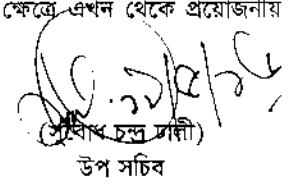 ক্ষেত্রে এখন থেকে প্রয়োজনীয়
(সুবোধ চন্দ্র ঢালী)
উপ সচিব